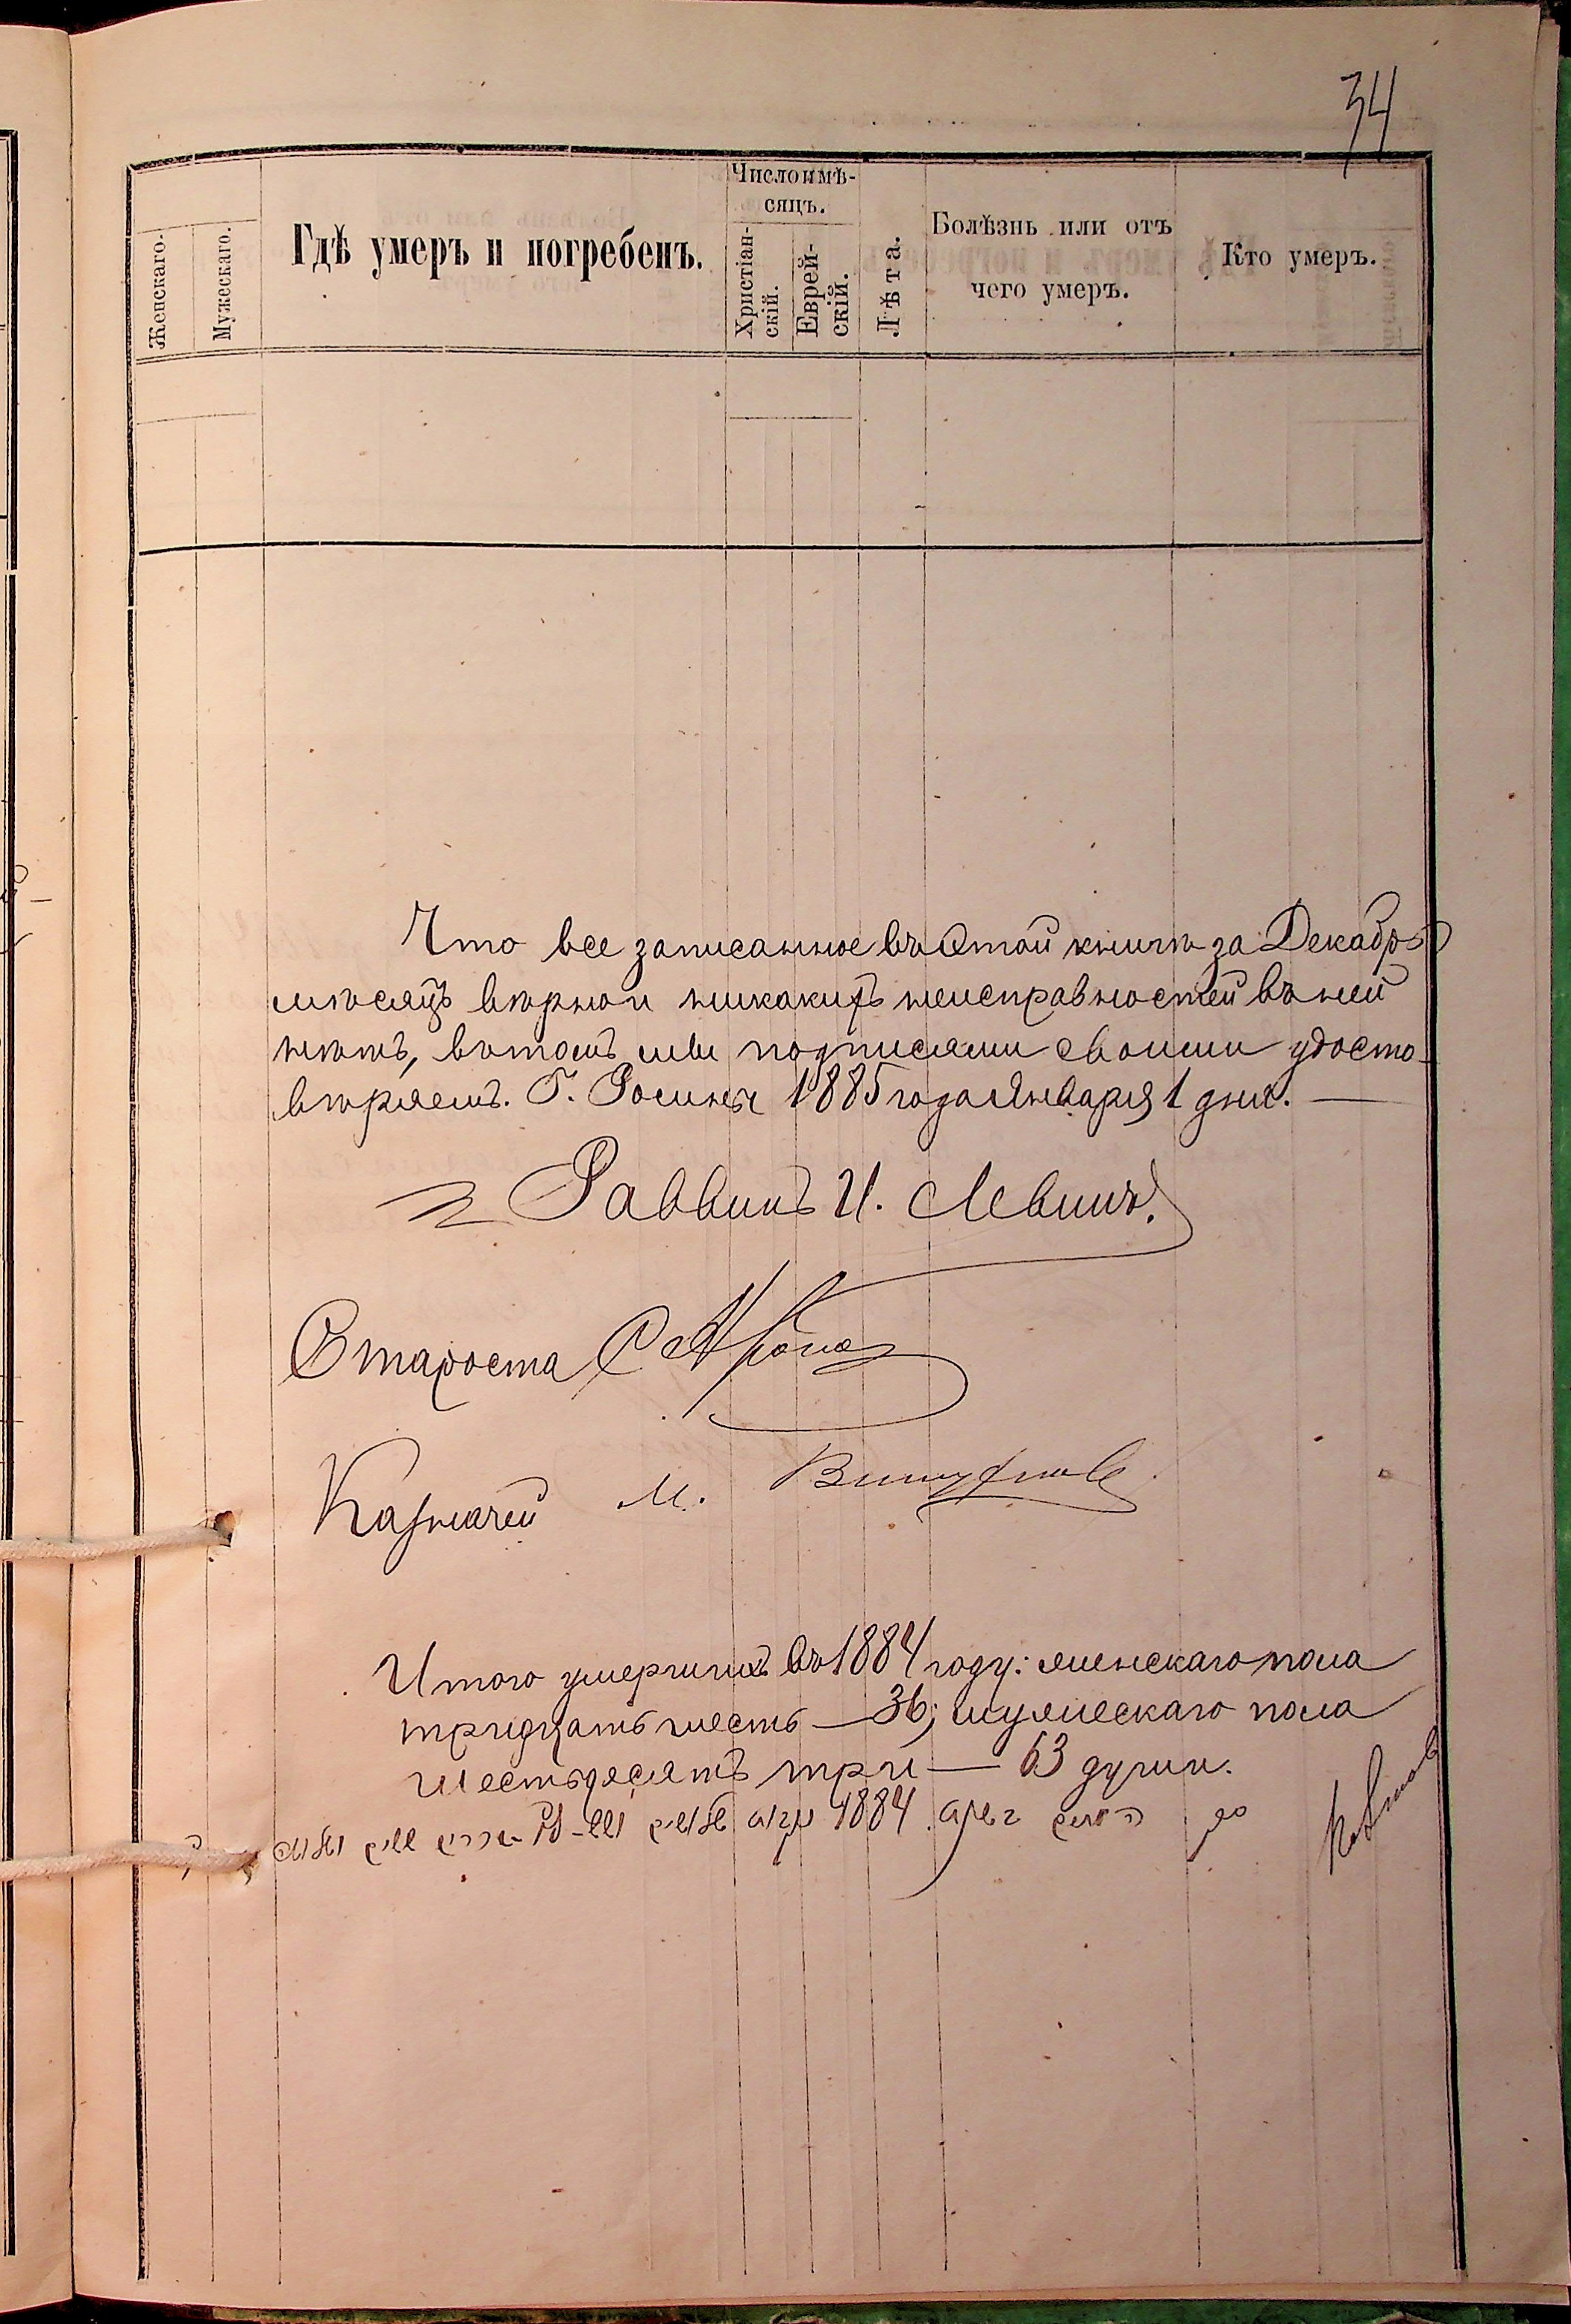 34
Женскаго.
Мужескаго.
Гдѣ умеръ и погребенъ.
Число и мѣ-
сяцъ.
Христіан-
скій.
Еврей-
скій.
Лѣта.
Болѣзнь или отъ
чего умеръ.
Кто умеръ.
Что все записанное въ этой книгѣ за Декабрь
мѣсяцъ вѣрно и никакихъ неисправностей въ ней
нѣтъ, въ томъ мы подписями своими удосто-
вѣряемъ. Г. Росіены 1885 года Января 1 дня. —
Раввинъ И. Левинъ.
Староста
Казначей М.
Итого умершихъ въ 1884 году: женскаго пола
тридцать шесть — 36; мужескаго пола
шестьдесятъ три — 63 души.
1884